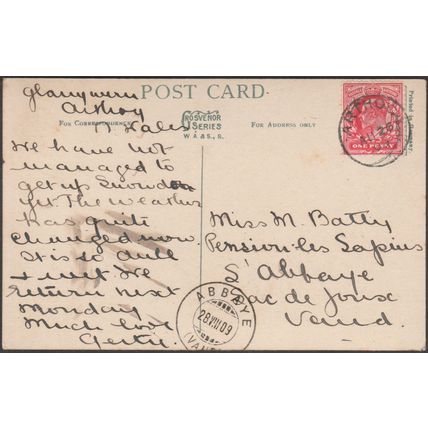 POST CARD
FOR CORRESPONDENCE
GROSVENOR
SERIES
W. A & S., S.
FOR ADDRESS ONLY
Printed in
ONE PENNY
Glanywern
Arthog
N Wales
We have not
managed to
get up Snowdon
yet The weather
has quite
changed now
It is so dull
& wet We
return next
Monday
Much love
Gertie
Miss M. Batty
Pension les Sapins
L'Abbaye
Lac de Joux
Vaud.
ARTHOG
ABBAYE
28 VIII 09
(VAUD)